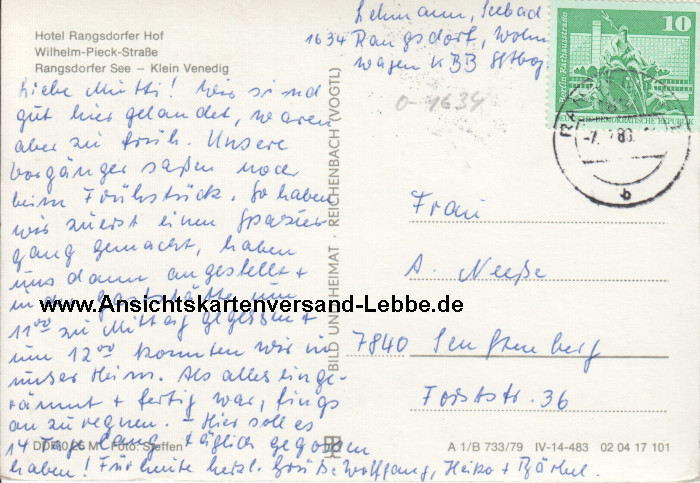 Hotel Rangsdorfer Hof
Wilhelm-Pieck-Straße
Rangsdorfer See – Klein Venedig
Liebe Mutti! Wir sind
gut hier gelandet, waren
aber zu früh. Unsere
Vorgänger saßen noch
beim Frühstück. So haben
wir zuerst einen Spazier
gang gemacht, haben
uns dann angestellt +
in der Gaststätte um
11⁰⁰ zu Mittag gegessen +
um 12⁰⁰ konnten wir in
unser Heim. Als alles einge-
räumt + fertig war, fings
an zu regnen. – Hier soll es
14 Tage lang täglich gegossen
haben! Für heute herzl. Grüße Wolfgang, Heiko + Bärbel.
DDR 0,25 M Foto: Steffen
BILD UND HEIMAT · REICHENBACH (VOGTL)
Lehmann, Seebad
1634 Rangsdorf, Wohn
wagen KBB
0-1634
10
Berlin, Rathausstraße
DEUTSCHE DEMOKRATISCHE REPUBLIK
b
Frau
A. Neeße
7840 Senftenberg
Forststr. 36
A 1/B 733/79 IV-14-483 02 04 17 101
www.Ansichtskartenversand-Lebbe.de